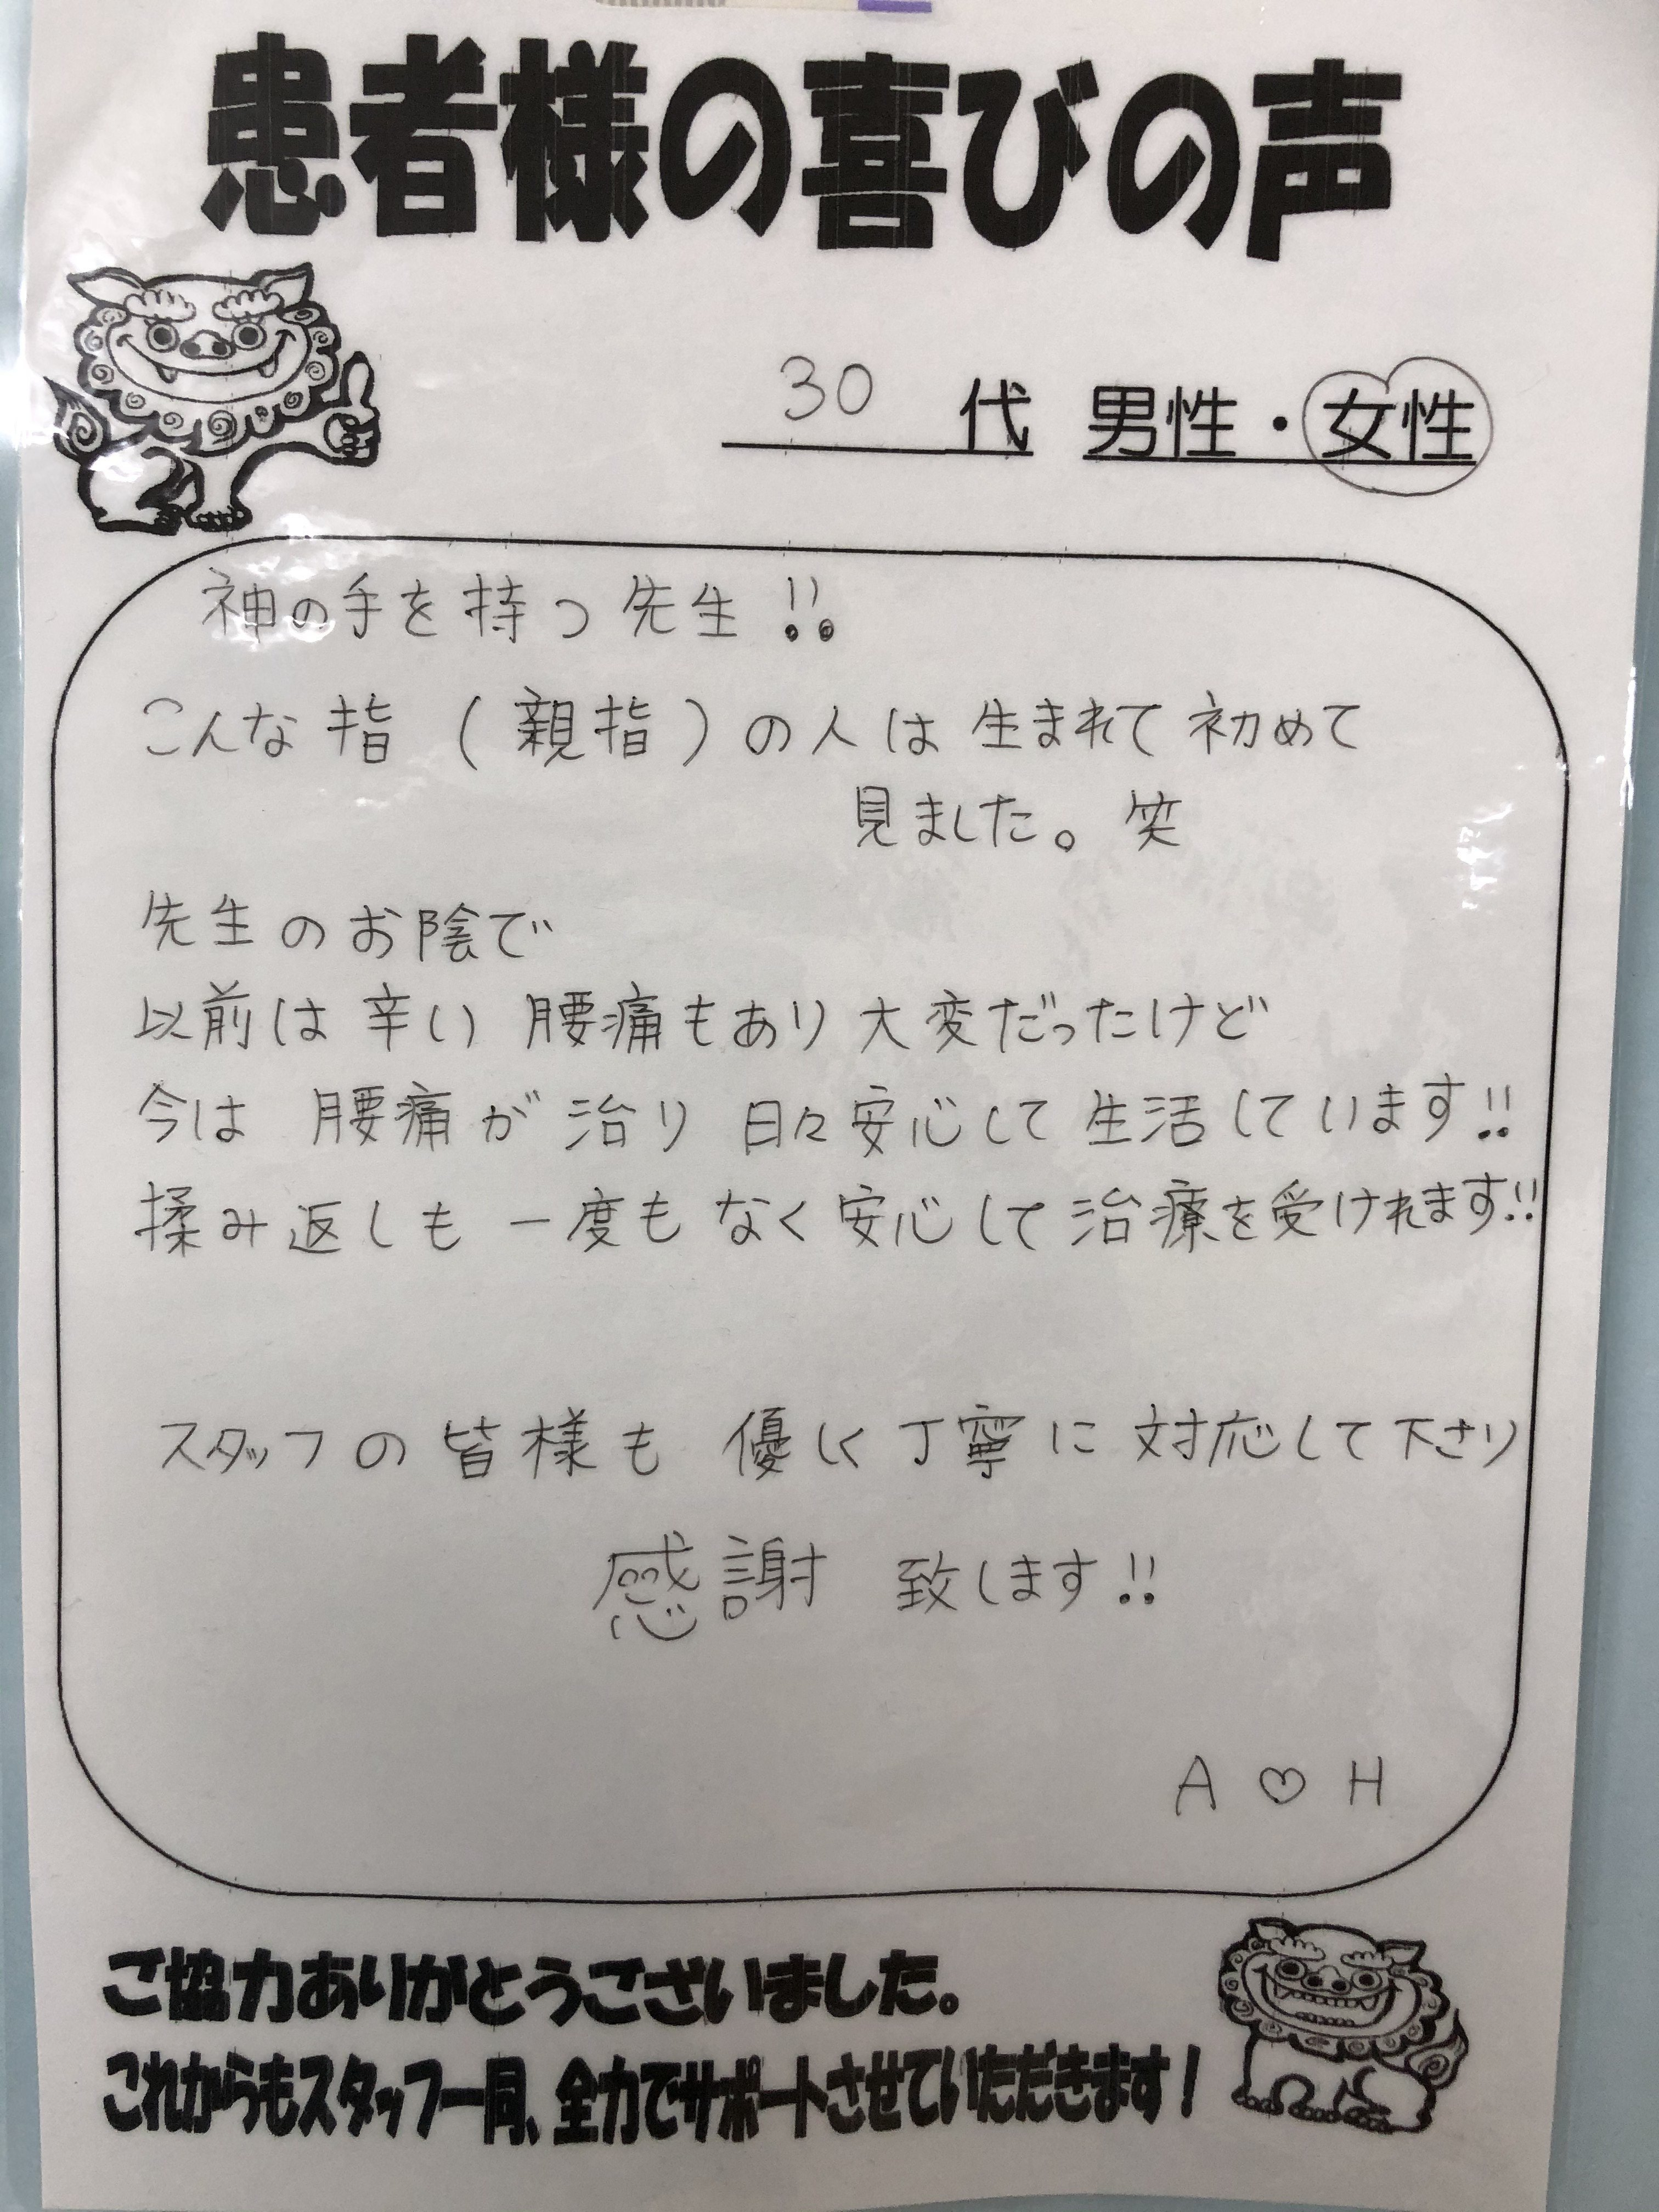 患者様の喜びの声
30 代 男性・女性
神の手を持つ先生!!
こんな指(親指)の人は生まれて初めて
見ました。笑
先生のお陰で
以前は辛い腰痛もあり大変だったけど
今は腰痛が治り日々安心して生活しています!!
揉み返しも一度もなく安心して治療を受けれます!!
スタッフの皆様も優しく丁寧に対応して下さり
感謝致します!!
A♡H
ご協力ありがとうございました。
これからもスタッフ一同、全力でサポートさせていただきます!